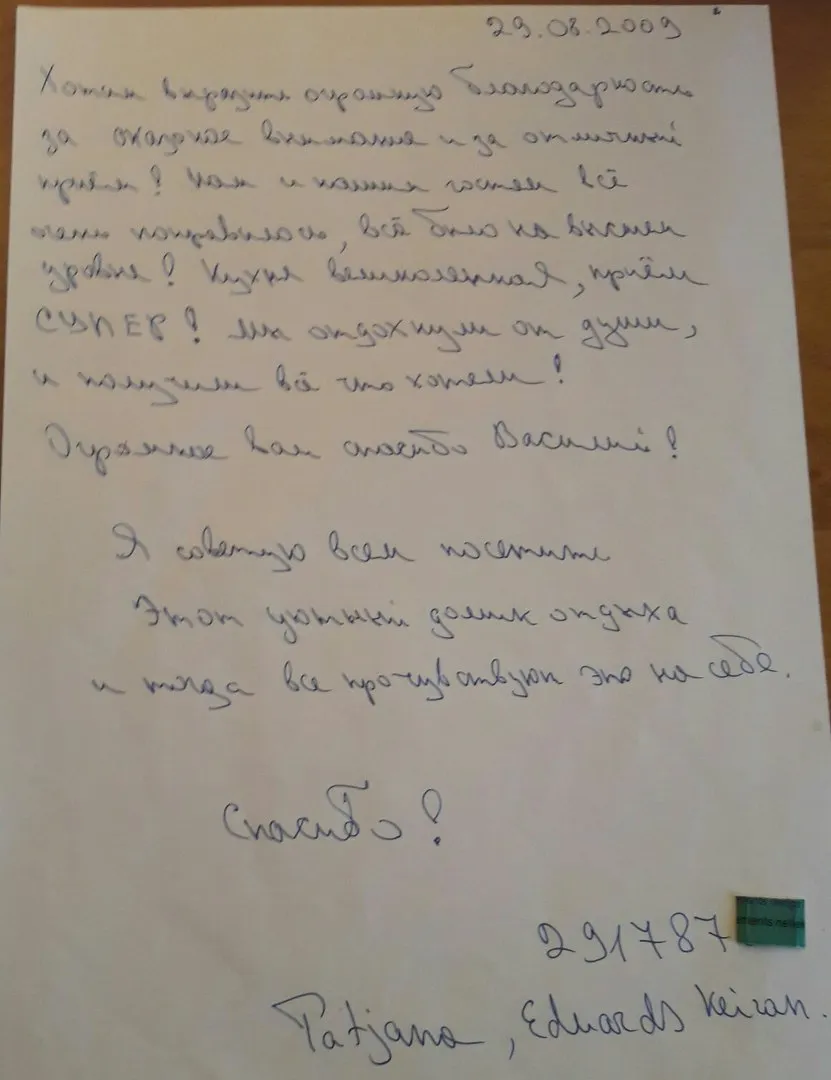 29.08.2009
Хотим выразить огромную благодарность
за оказаное внимание и за отличный
приём! Нам и нашим гостям всё
очень понравилось, всё было на высшем
уровне! Кухня великолепная, приём
СУПЕР! Мы отдохнули от души,
и получили всё что хотели!
Огромное Вам спасибо Василий!
Я советую всем посетить
Этот уютный домик отдыха
и тогда все прочувствуют это на себе.
Спасибо!
291787
Tatjana, Eduards